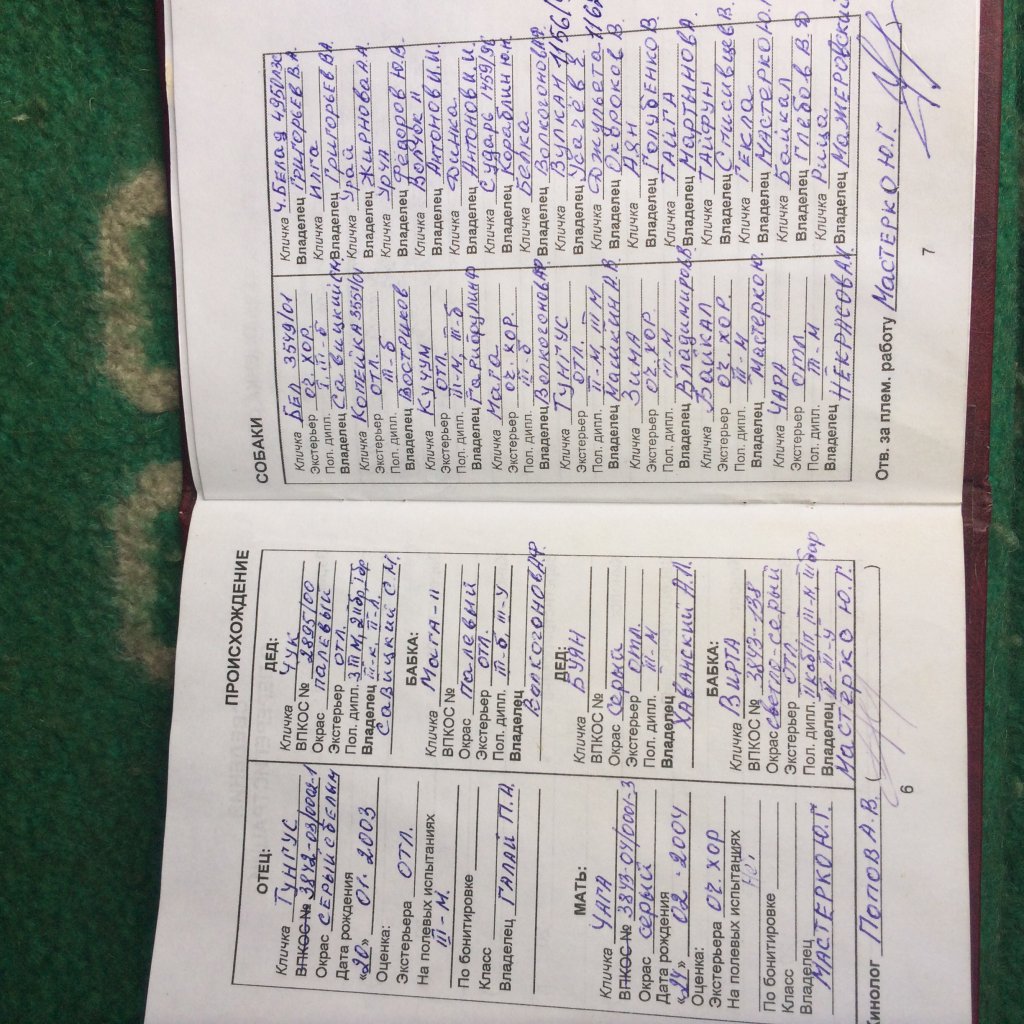 ПРОИСХОЖДЕНИЕ
ОТЕЦ:
Кличка ТУНГУС
ВПКОС № 3842-03/0002-1
Окрас СЕРЫЙ С БЕЛЫМ
Дата рождения
«20» 01. 2003
Оценка:
Экстерьера ОТЛ.
На полевых испытаниях
III-М.
По бонитировке
Класс
Владелец ГАЛАЙ П.А.
МАТЬ:
Кличка ЧАГА
ВПКОС № 3843-04/0001-3
Окрас серый
Дата рождения
«24» 02 . 2004
Оценка:
Экстерьера ОЧ. ХОР
На полевых испытаниях
Нет
По бонитировке
Класс
Владелец
МАСТЕРКО Ю.Г.
ДЕД:
Кличка ЧУК
ВПКОС № 2895/00
Окрас палевый
Экстерьер ОТЛ.
Пол. дипл. 3 III М,
Владелец III-к, II-Л
САВИЦКИЙ С.М.
БАБКА:
Кличка Мага-II
ВПКОС №
Окрас палевый
Экстерьер ОТЛ.
Пол. дипл. III-б, III-у
Владелец
Волкогонов А.Ф.
ДЕД:
Кличка БУАН
ВПКОС №
Окрас серый
Экстерьер ОТЛ.
Пол. дипл. III-М
Владелец
ХАВАНСКИЙ А.П.
БАБКА:
Кличка ВИРТА
ВПКОС № 3843
Окрас светло-серый
Экстерьер ОТЛ.
Пол. дипл. III-М
Владелец III-у
Мастерко Ю.Г.
Кинолог Попов А.В. ( )
6
СОБАКИ
Кличка БЕЛ 3549/01
Экстерьер ОЧ. ХОР
Пол. дипл. I, III-б
Владелец Савицкий
Кличка КОПЕЙКА 3551/01
Экстерьер ОТЛ.
Пол. дипл. III-б
Владелец ВОСТРИКОВ
Кличка КУЧУМ
Экстерьер ОТЛ
Пол. дипл. III-М, III-б
Владелец Гарифулин Ф
Кличка Мага
Экстерьер ОЧ. ХОР.
Пол. дипл. III-б
Владелец Волкогонов А.Ф.
Кличка ТУНГУС
Экстерьер ОТЛ.
Пол. дипл. II-М, III М
Владелец Машкин А.В.
Кличка ЗИНА
Экстерьер ОЧ. ХОР.
Пол. дипл. III-М
Владелец Владимиров В.
Кличка БАЙКАЛ
Экстерьер ОЧ. ХОР.
Пол. дипл. III-М
Владелец Мастерко Ю.
Кличка ЧАРА
Экстерьер ОТЛ
Пол. дипл. III-М
Владелец НЕКРАСОВ А.К.
Кличка Ч. БЕЛКА 4951/лзс
Владелец Григорьев В.А.
Кличка Илга
Владелец Григорьев В.А.
Кличка Урай
Владелец Жирнова А.А.
Кличка Урул
Владелец Федоров Ю.В.
Кличка Волчок II
Владелец Антоновы И.
Кличка Динка
Владелец Антонов К.И.
Кличка Сударь 1459/95
Владелец Кораблин Ю.Н.
Кличка Белка
Владелец Волкогонов А.Ф.
Кличка Вулкан 1156/
Владелец Усачёв Е.
Кличка Джульета 1162
Владелец Окороков В.
Кличка АЯН
Владелец Голубенков В.
Кличка ТАЙГА
Владелец Мартынов А.
Кличка ТАЙФУН
Владелец Спесивцев В.
Кличка ТЕКЛА
Владелец МАСТЕРКО Ю.Г.
Кличка Байкал
Владелец Глебов В.Я
Кличка Рица
Владелец Мажеровский
Отв. за плем. работу Мастерко Ю.Г.
7